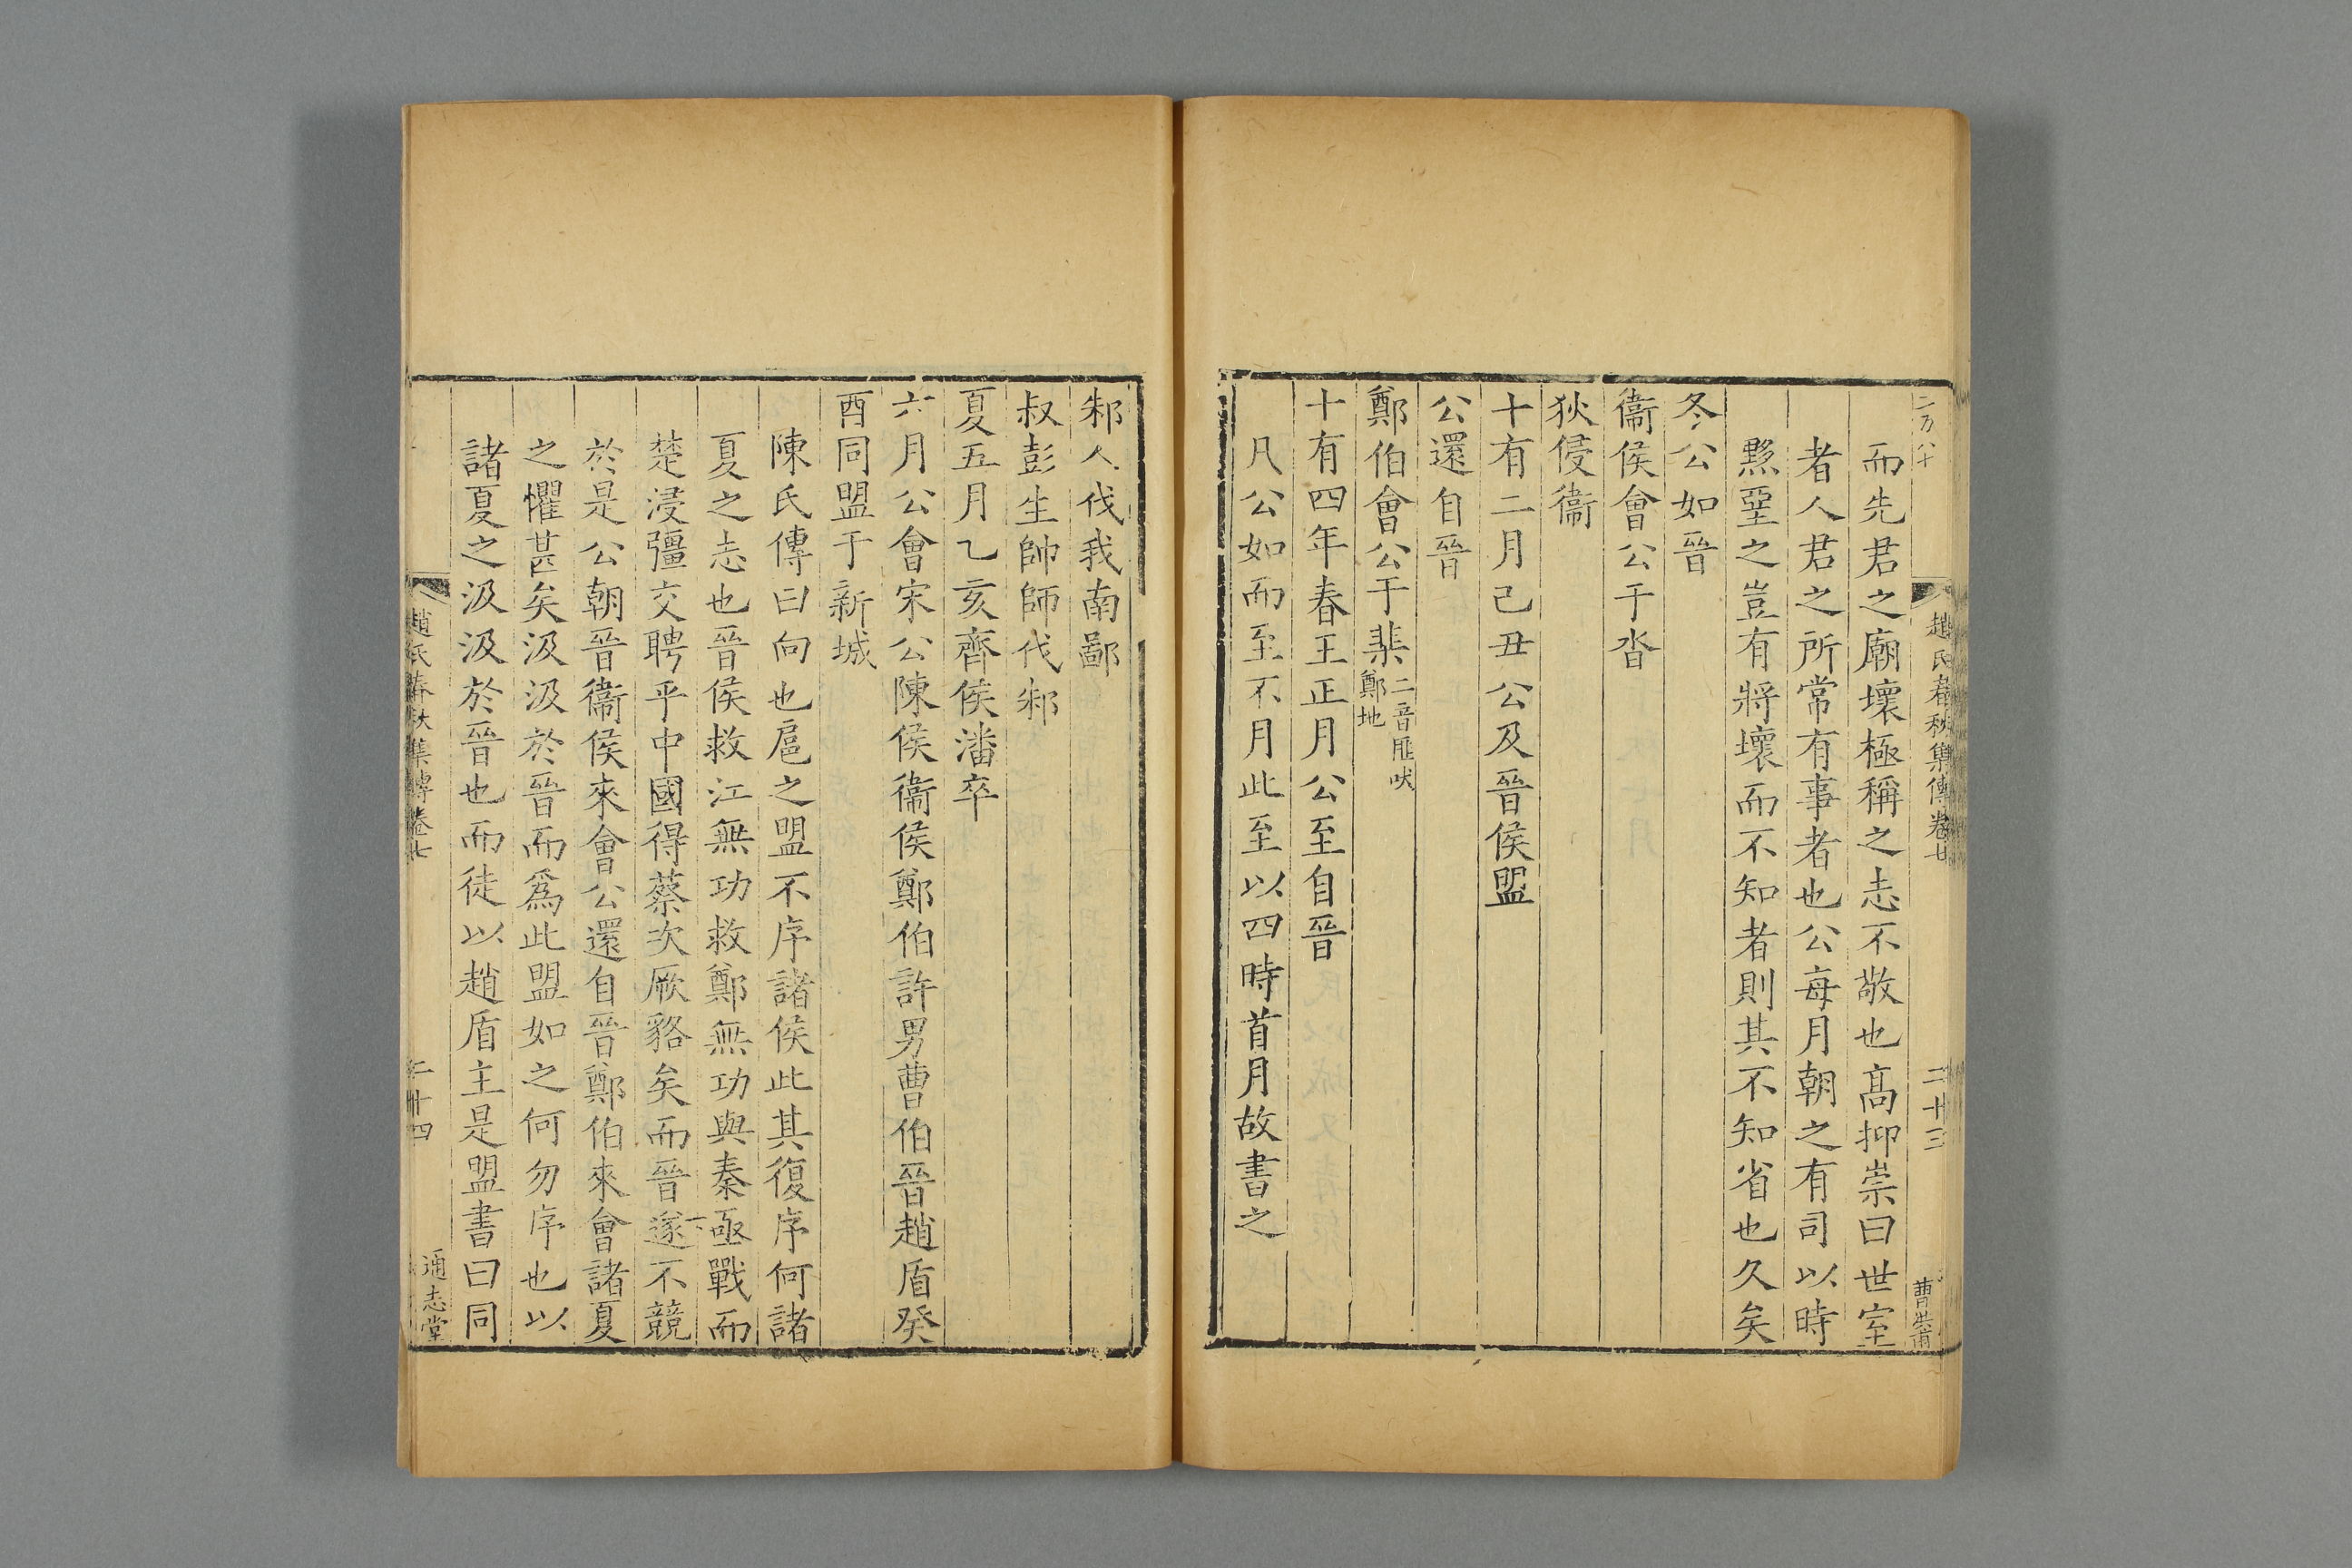 而先君之廟壞極稱之志不敬也高抑崇曰世室
者人君之所常有事者也公每月朝之有司以時
黝堊之豈有將壞而不知者則其不知省也久矣
冬公如晉
衞侯會公于沓
狄侵衞
十有二月己丑公及晉侯盟
公還自晉
鄭伯會公于棐二音匪吠鄭地
十有四年春王正月公至自晉
凡公如而至不月此至以四時首月故書之
邾人伐我南鄙
叔彭生帥師伐邾
夏五月乙亥齊侯潘卒
六月公會宋公陳侯衞侯鄭伯許男曹伯晉趙盾癸
酉同盟于新城
陳氏傳曰向也扈之盟不序諸侯此其復序何諸
夏之志也晉侯救江無功救鄭無功與秦亟戰而
楚浸彊交聘乎中國得蔡次厥貉矣而晉遂不競
於是公朝晉衞侯來會公還自晉鄭伯來會諸夏
之懼甚矣汲汲於晉而爲此盟如之何勿序也以
諸夏之汲汲於晉也而徒以趙盾主是盟書曰同
趙氏春秋集傳卷七
二十四
通志堂